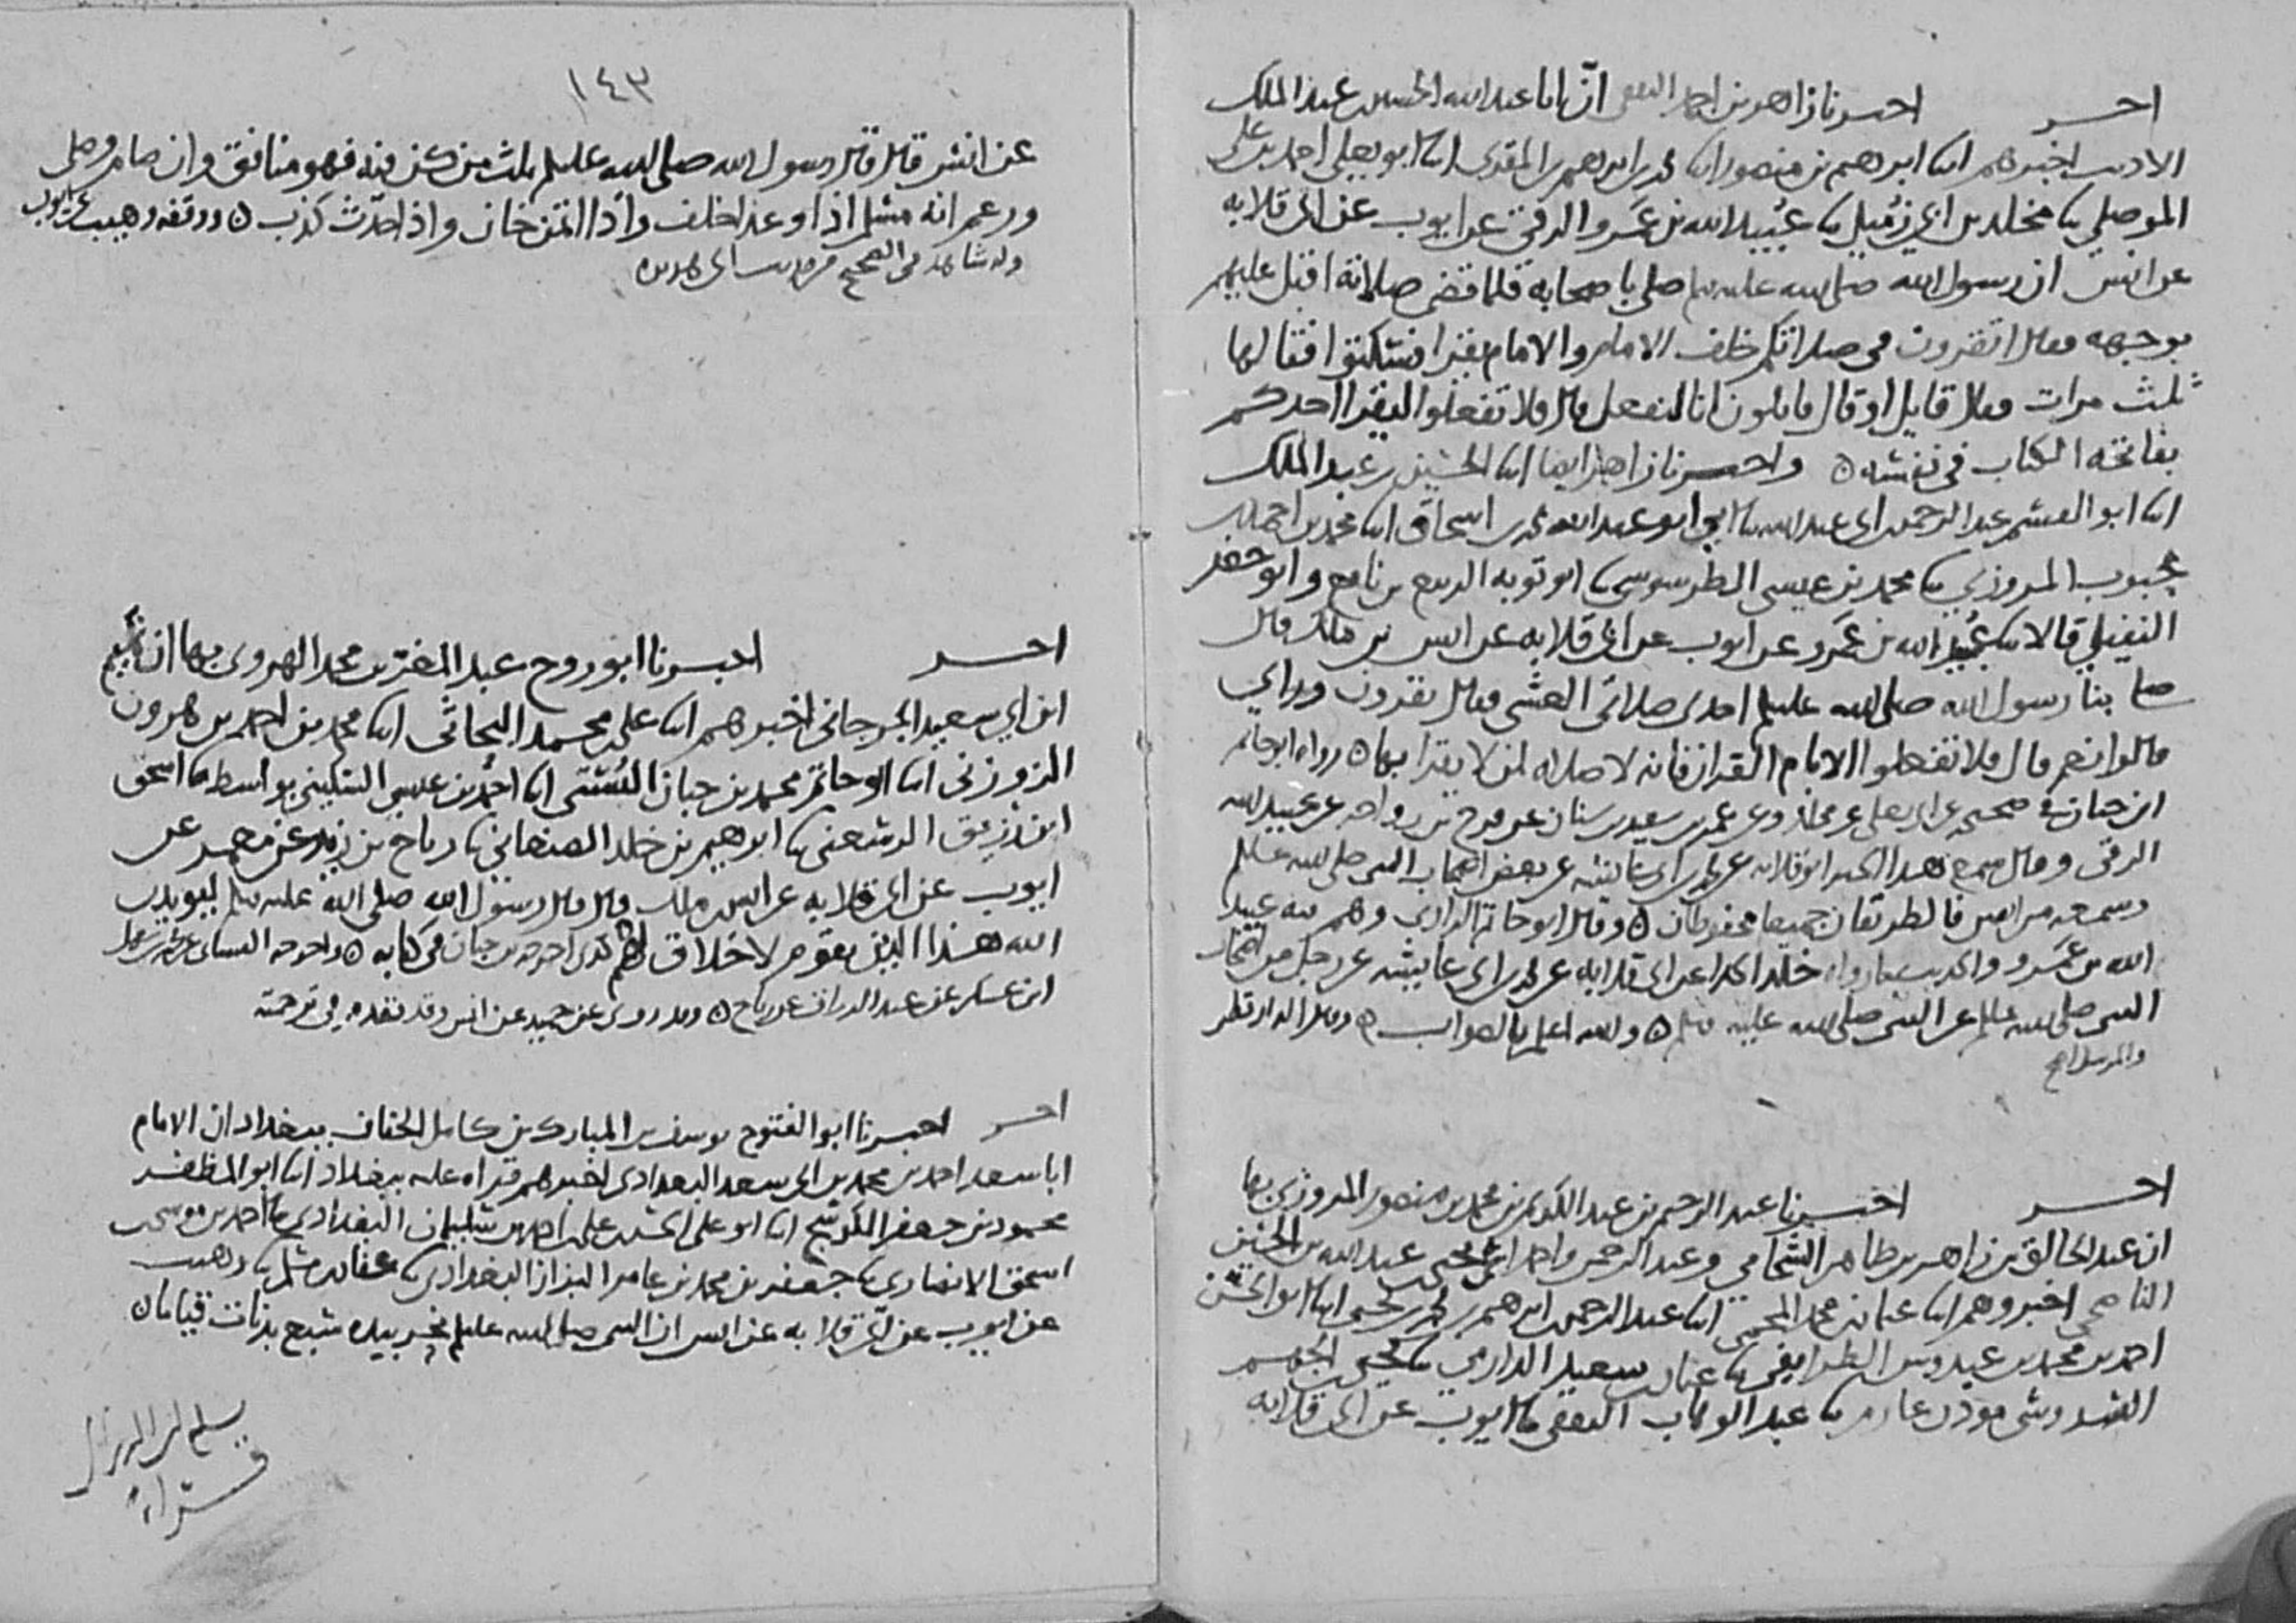 احـــر احبرنا زاهر بن احمد الثقفي انّ ابا عبد الله الحسين بن عبد الملك
الاديب اخبرهم ابنا ابرهيم بن منصور ابنا محمد بن ابرهيم بن المقرئ ابنا ابو يعلى احمد بن علي
الموصلي نا مخلد بن ابي زُمَيل نا عُبيد الله بن عَمرو الرقي عن ايوب عن ابي قلابه
عن انس ان رسول الله صلى الله عليه وسلم صلى باصحابه فلما قضى صلاته اقبل عليهم
بوجهه فقال اتقرون في صلاتكم خلف الامام والامام يقرا فسكتوا فقالها
ثلث مرات فقال قايل او قال قايلون انا لنفعل قال فلا تفعلوا ليقرا احدكم
بفاتحه الكتاب في نفسه ه واحبرنا زاهر ايضا ابنا الحسين بن عبد الملك
ابنا ابو القسم عبد الرحمن بن ابي عبد الله نا ابي ابو عبد الله محمد بن اسحاق ابنا محمد بن احمد بن
محبوب المروزي نا محمد بن عيسى الطرسوسي نا ابو توبه الربيع بن نافع وابو جعفر
النفيلي قالا نا عُبيد الله بن عَمرو عن ايوب عن ابي قلابه عن انس بن ملك قال
صلى بنا رسول الله صلى الله عليه وسلم احدى صلاتي العشي فقال تقرون وراي
قالوا نعم قال فلا تفعلوا الا بام القران فانه لا صلاه لمن لا يقرا بها ه رواه ابو حاتم
ابن حبان في صحيحه عن ابي يعلى عن مخلد وعن عمر بن سعيد بن سنان عن فرج بن رواحه عن عبيد الله
الرقي وقال سمع هذا الخبر ابو قلابه عن محمد بن ابي عايشه عن بعض اصحاب النبي صلى الله عليه وسلم
وسمعه من انس فالطريقان جميعا محفوظان ه وقال ابو حاتم الرازي وهم فيه عبيد
الله بن عَمرو والحديث ما رواه خلد الحذا عن ابي قلابه عن محمد بن ابي عايشه عن رجل من اصحاب
النبي صلى الله عليه وسلم عن النبي صلى الله عليه وسلم ه والله اعلم بالصواب ه وقال الدارقطني
والمرسل اصح
احـــر اخبرنا عبد الرحيم بن عبد الكريم بن محمد بن منصور المروزي بها
ان عبد الخالق بن زاهر بن طاهر الشحامي وعبد الرحمن عبد الله بن الحسين
اخبروهم ابنا عثمان بن محمد المحمي ابنا عبد الرحمن بن ابرهيم بن محمد بن يحيى ابنا ابو الحسن
احمد بن محمد بن عبدوس الطرايفي نا عثمان بن سعيد الدارمي نا يحيى
موذن عارم نا عبد الوهاب الثقفي نا ايوب عن ابي قلابه
١٤٣
عن انس قال قال رسول الله صلى الله عليه وسلم ثلث من كن فيه فهو منافق وان صام وصلى
وزعم انه مسلم اذا وعد اخلف واذا ائتمن خان واذا حدّث كذب ه ووقفه وهيب عن ايوب
وله شاهد في الصحيح من حديث ابي هريره
احـــر احبرنا ابو روح عبد المعز بن محمد الهروي بها ان تميم
ابن ابي سعيد الجرجاني اخبرهم ابنا علي بن محمد البحاثي ابنا محمد بن احمد بن هرون
الزوزني ابنا ابو حاتم محمد بن حبان البُستي ابنا احمد بن عيسى السكيني بواسط نا اسحق
ابن زريق الرسعني نا ابرهيم بن خلد الصنعاني نا رباح بن زيد عن معمر عن
ايوب عن ابي قلابه عن انس بن ملك قال قال رسول الله صلى الله عليه وسلم ليويدن
الله هذا الدين بقوم لا خلاق لهم كذى اخرجه بن حبان في كتابه ه واخرجه النساي عن محمد بن سهل
ابن عسكر عن عبد الرزاق عن رباح ه وقد روي عن حميد عن انس وقد تقدم في ترجمته
احـــر احبرنا ابو الفتوح يوسف بن المبارك بن كامل الخفاف ببغداد ان الامام
ابا سعد احمد بن محمد بن ابي سعد البغدادي اخبرهم قراه عليه ببغداد ابنا ابو المظفر
محمود بن جعفر الكوسج ابنا ابو علي الحسن بن علي بن احمد بن سليمان البغدادي نا احمد بن موسى بن
اسحق الانصاري نا جعفر بن محمد بن عامر البزاز البغدادي نا عفان بن مسلم نا وهيب
عن ايوب عن ابي قلابه عن انس ان النبي صلى الله عليه وسلم نحر بيده سبع بدنات قياما ه